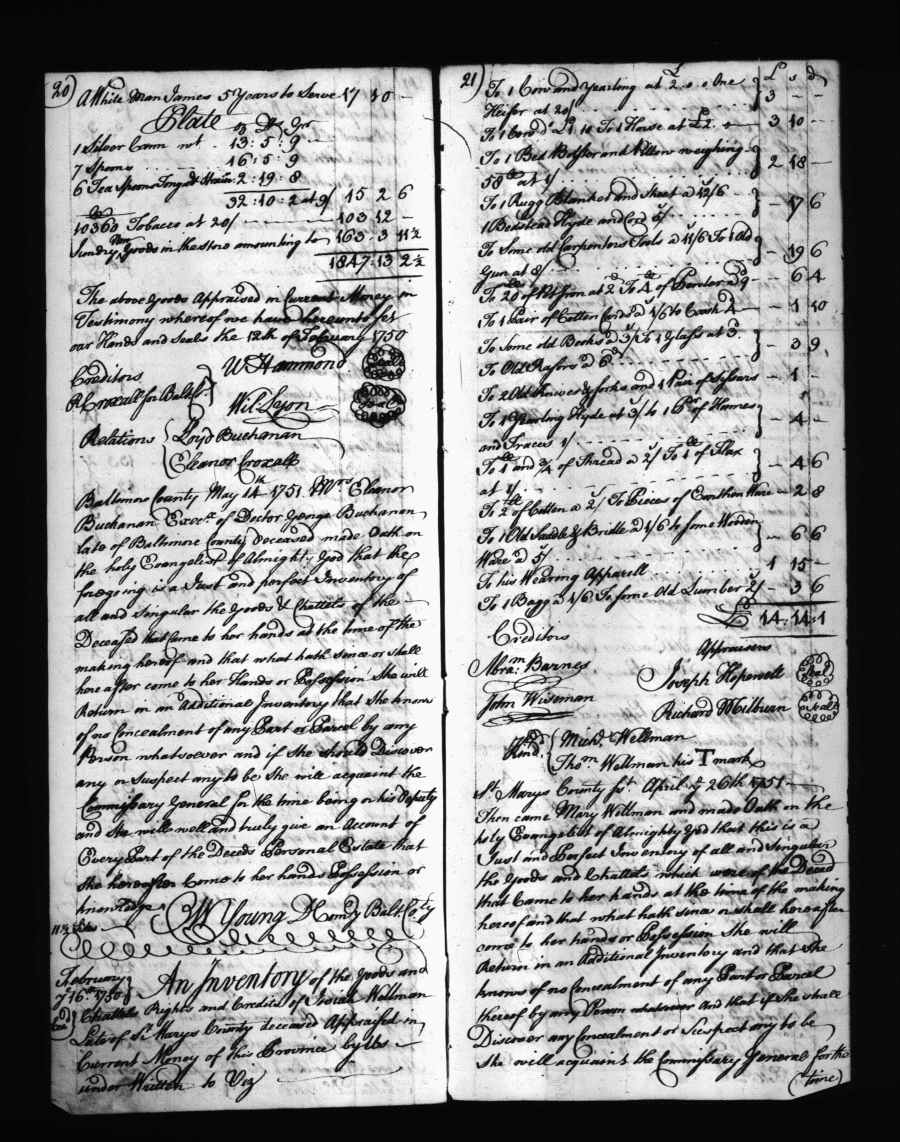 20)
A White Man James 5 Years to Serve 17 10 -
Plate oz Dw Gr
1 Silver Cann wt. 13 : 5 : 9
7 Spoons 16 : 5 : 9
6 Tea Spoons Tongs & Strainer 2 : 19 : 8
32 : 10 : 2 at 9/ 15 2 6
10360 Tobacco at 20/ 103 12 -
Sundry New Goods in the store amounting to 163 3 11½
1847 13 2½
The above Goods Appraised in Current Money in
Testimony whereof we have hereunto Set
our Hands and Seals the 12th of February 1750
W Hammond Seal
Creditors
R Croxall for Balt Co.
Wil. Lyon Seal
Relations Loyd Buchanan
Eleanor Croxall
Baltimore County May 14th 1751. Mrs Eleanor
Buchanan Execx. of Doctor George Buchanan
late of Baltimore County deceased made Oath on
the holy Evangelist of Almighty God that the
foregoing is a Just and perfect Inventory of
all and Singular the Goods & Chattels of the
Deceased that Came to her hands at the time of the
making hereof and that what hath Since or Shall
hereafter come to her Hands or Possession She will
Return in an Additional Inventory that She knows
of no Concealment of any Part or Parcel by any
Person whatsoever and if She Should Discover
any or Suspect any to be She will acquaint the
Commissary General for the time being or his Deputy
and She will well and truly give an Account of
Every Part of the Deceds Personal Estate that
She hereafter Come to her hands Possession or
knowledge W Young D Comry Balt. Coty
February
y 16th 1750
An Inventory of the Goods and
Chattels Rights and Credits of Wellman
Late of St Marys County deceased Appraised in
Current Money of this Province by Us
under Written to Viz
21)
£ s d
To 1 Cow and Yearling at £2..0..0 One
Heifer at 20/ 3 - -
To 1 Cow do £1..10 To 1 Horse at £2.. 3 10 -
To 1 Bed Bolster and Pillow weighing
58 lb at 1/ 2 18 -
To 1 Rugg Blanket and Sheet a 12/6
1 Bedstead Hyde and Cord 5/ - 17 6
To Some old Carpenters Tools a 11/6 To 1 Old
Gun at 8/ - 19 6
To 20 lb of Pot Iron at 2d To ¼ lb of Powder a 9 - 6 4
To 1 Pair of Cotton Cards a 1/6 to Cash 4 - 1 10
To Some old Books a 3/ To 1 Glass at 3d
To Old Rasors a 6d - 3 9
To 2 Old Knives & forks and 1 Pair of Sisars - 1 -
To 1 Yearling Hyde at 3/ to 1 Pr of Hames
and Traces 1/ - 4 -
To 1 lb and ¾ of Thread a 2/ To 1 lb of Flax
at 1/ - 4 6
To 2 lb of Cotton a 2/ To Pieces of Earthen Ware - 2 8
To 1 Old Saddle & Bridle a 1/6 to some Wooden
Ware a 5/ - 6 6
To his Wearing Apparell 1 15 -
To 1 Bagg a 1/6 To some Old Lumber 2/ - 3 6
£ 14 : 14 : 1
Creditors
Appraisers
Abram. Barnes
Joseph Hopewell Seal
John Wiseman
Richard Milburn Seal
Kind. Michl. Wellman
Thom Wellman his T mark
St Marys County sst. April y 26th 1751
Then came Mary Wellman and made Oath on the
holy Evangelist of Almighty God that this is a
Just and Perfect Inventory of all and Singular
the Goods and Chattels which were of the Deced
that Came to her hands at the time of the making
hereof and that what hath since or shall hereafter
come to her hands or Possession She will
Return in an Additional Inventory and that She
knows of no Concealment of any Part or Parcel
thereof by any Person whatsoever And that if She shall
Discover any Concealment or Suspect any to be
She will acquaint the Commissary General for the
(time)